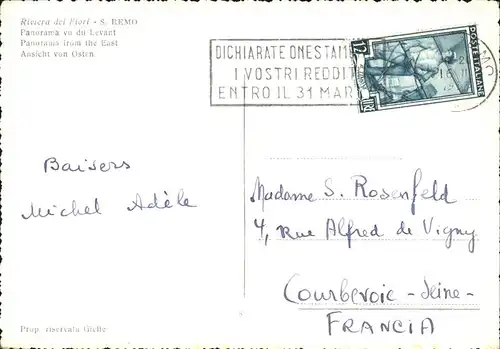 Riviera dei Fiori - S. REMO
Panorama vu du Levant
Panorama from the East
Ansicht von Osten
DICHIARATE ONESTAM
I VOSTRI REDDIT
ENTRO IL 31 MAR
POSTE ITALIANE
Baisers
Michel Adèle
Madame S. Rosenfeld
4, Rue Alfred de Vigny
Courbevoie - Seine -
FRANCIA
Prop. riservata Gielle